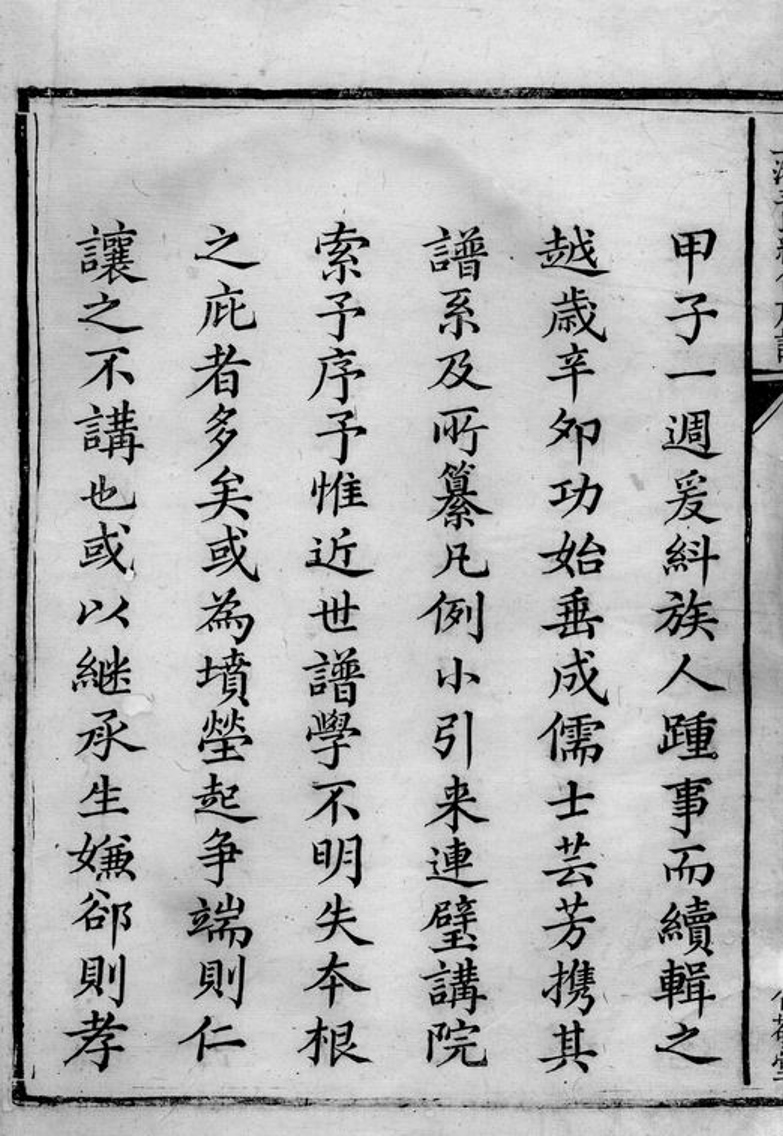 甲子一週爰糾族人踵事而續輯之
越歳辛夘功始垂成儒士芸芳携其
譜系及所纂凡例小引来連璧講院
索予序予惟近世譜學不明失本根
之庇者多矣或為墳塋起争端則仁
讓之不講也或以継承生嫌郤則孝